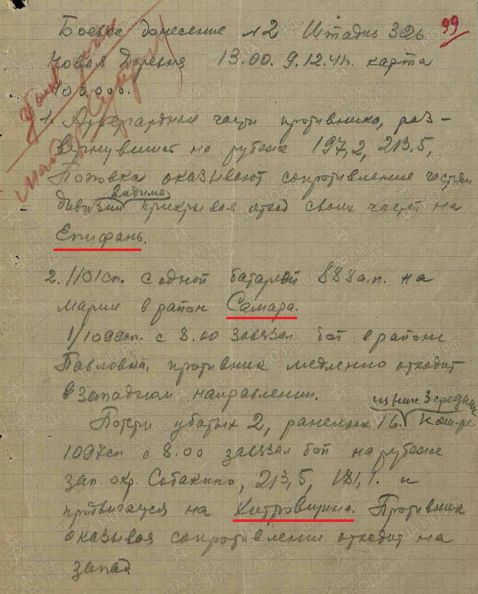 99
Боевое донесение №2 Штадив 326
Новая Деревня 13.00. 9.12.41г. карта
100.000.
1) Арьергардные части противника, раз-
вернувшись на рубеже 197,2, 213,5,
Поповка оказывают сопротивление частям
дивизии видимо прикрывая отход своих частей на
Епифань.
2. 1101сп. с одной батареей 888а.п. на
марше в район Самара.
1/1099сп. с 8.00 завязал бой в районе
Павловка, противник медленно отходит
в западном направлении.
Потери убитых 2, раненых 16. из них 3 средних
1097сп с 8.00 завязал бой на рубеже
зап. окр. Собакино, 213,5, 181,1. и
продвигается на Хитровщина. Противник
оказывая сопротивление отходит на
запад